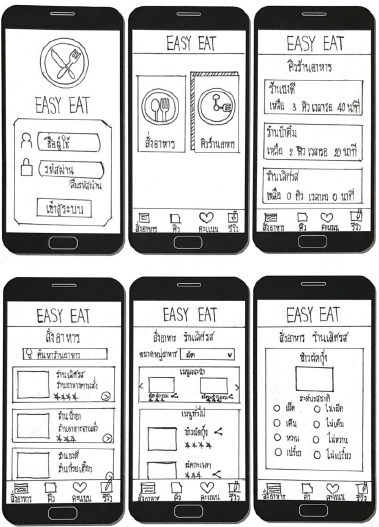 EASY EAT
ชื่อผู้ใช้
รหัสผ่าน
ลืมรหัสผ่าน
เข้าสู่ระบบ
EASY EAT
สั่งอาหาร
คิวร้านอาหาร
สั่งอาหาร คิว คะแนน รีวิว
EASY EAT
คิวร้านอาหาร
เหลือ 3 คิว เวลารอ 40 นาที
ร้านป้าติ๋ม
เหลือ 2 คิว เวลารอ 20 นาที
ร้านเลิศรส
เหลือ 0 คิว เวลารอ 0 นาที
สั่งอาหาร คิว คะแนน รีวิว
EASY EAT
สั่งอาหาร
ค้นหาร้านอาหาร
ร้านเลิศรส
ร้านอาหารตามสั่ง
ร้านอาหารตามสั่ง
ร้านก๋วยเตี๋ยว
สั่งอาหาร คิว คะแนน รีวิว
EASY EAT
สั่งอาหาร ร้านเลิศรส
หมวดหมู่อาหาร ผัด
เมนูแนะนำ
เมนูทั่วไป
ข้าวผัดกุ้ง
ผัดกะเพรา
สั่งอาหาร คิว คะแนน รีวิว
EASY EAT
สั่งอาหาร ร้านเลิศรส
ข้าวผัดกุ้ง
ระดับรสชาติ
เผ็ด ไม่เผ็ด
เค็ม ไม่เค็ม
หวาน ไม่หวาน
เปรี้ยว ไม่เปรี้ยว
สั่งอาหาร คิว คะแนน รีวิว